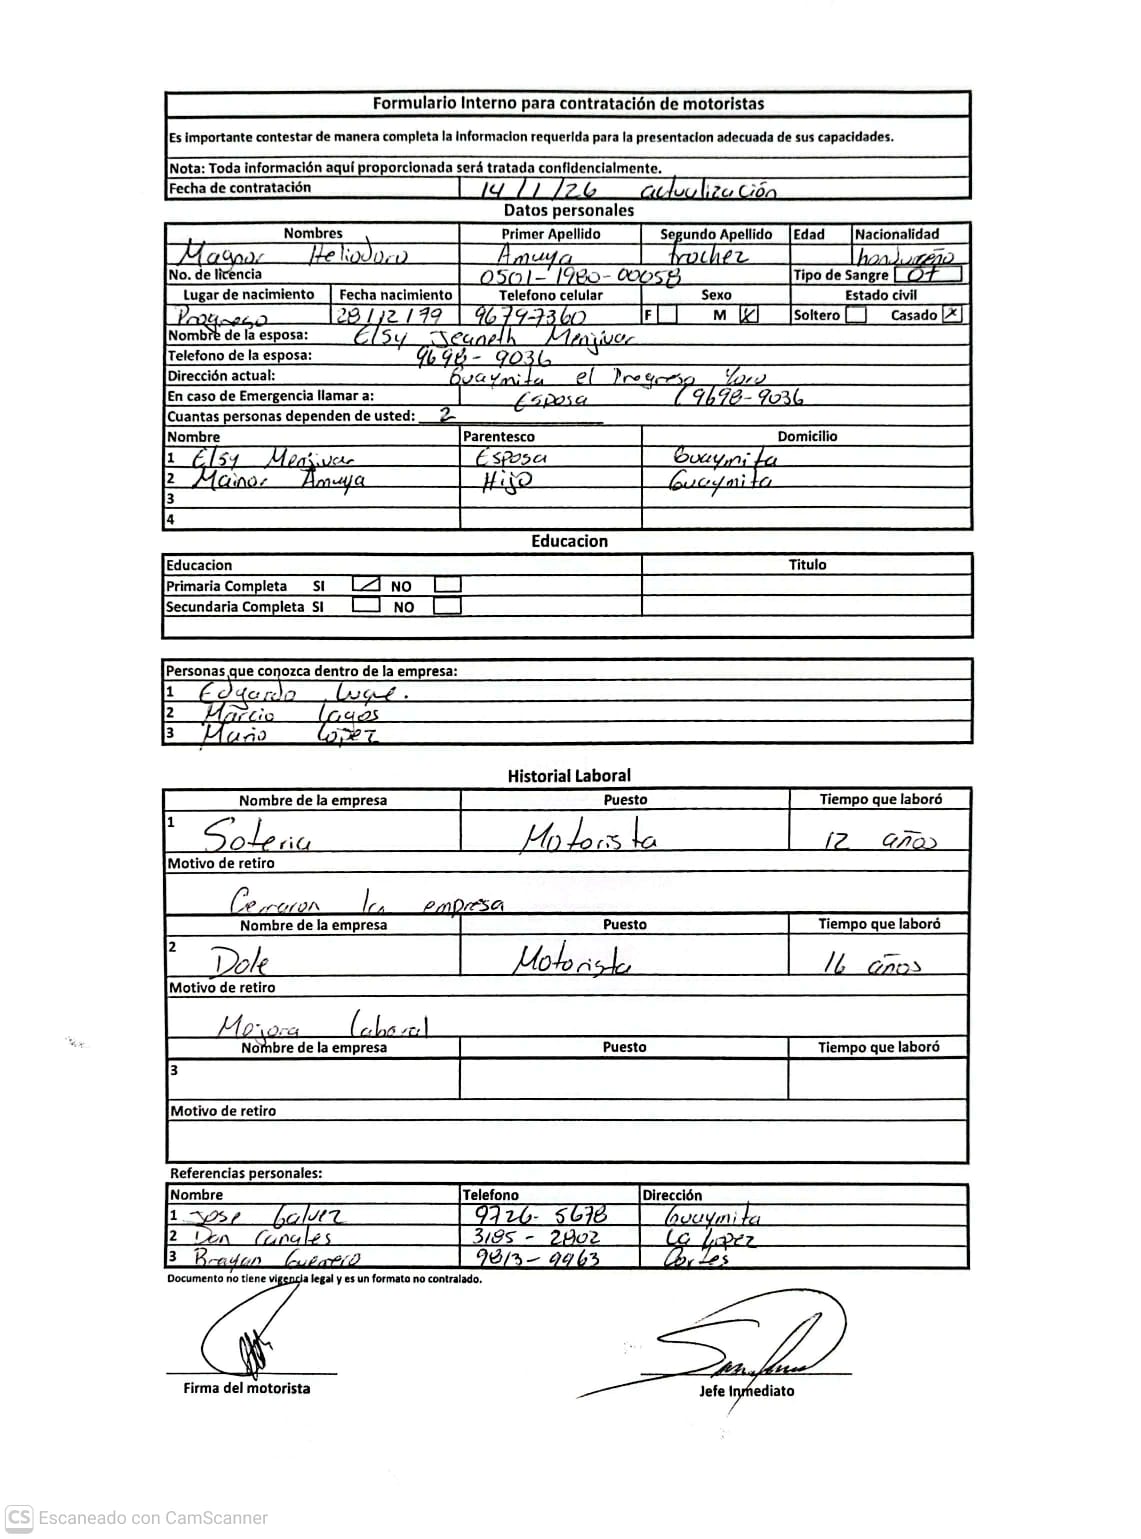 Formulario Interno para contratación de motoristas
Es importante contestar de manera completa la informacion requerida para la presentacion adecuada de sus capacidades.
Nota: Toda información aquí proporcionada será tratada confidencialmente.
Fecha de contratación 14/1/26 actualización
Datos personales
Nombres Primer Apellido Segundo Apellido Edad Nacionalidad
Magnor Heliodoro Amuya trochez hondureño
No. de licencia 0501-1980-00058 Tipo de Sangre O+
Lugar de nacimiento Fecha nacimiento Telefono celular Sexo Estado civil
Progreso 28/12/79 9674-7360 F M X Soltero Casado X
Nombre de la esposa: Elsy Jeaneth Menjivar
Telefono de la esposa: 9698-9036
Dirección actual: Guaymita el Progreso Yoro
En caso de Emergencia llamar a: Esposa 9698-9036
Cuantas personas dependen de usted: 2
Nombre Parentesco Domicilio
1 Elsy Menjivar Esposa Guaymita
2 Mainor Amuya Hijo Guaymita
3
4
Educacion
Educacion Titulo
Primaria Completa SI NO
Secundaria Completa SI NO
Personas que conozca dentro de la empresa:
1 Edgardo Luque.
2 Marcio Lagos
3 Mario Lopez
Historial Laboral
Nombre de la empresa Puesto Tiempo que laboró
1 Soteria Motorista 12 años
Motivo de retiro
Cerraron la empresa
Nombre de la empresa Puesto Tiempo que laboró
2 Dole Motorista 16 años
Motivo de retiro
Mejora laboral
Nombre de la empresa Puesto Tiempo que laboró
3
Motivo de retiro
Referencias personales:
Nombre Telefono Dirección
1 Jose Galvez 9726-5678 Guaymita
2 Dan Canales 3185-2802 La Lopez
3 Brayan Guerrero 9813-9963 Cortes
Documento no tiene vigencia legal y es un formato no contralado.
Firma del motorista Jefe Inmediato
CS Escaneado con CamScanner